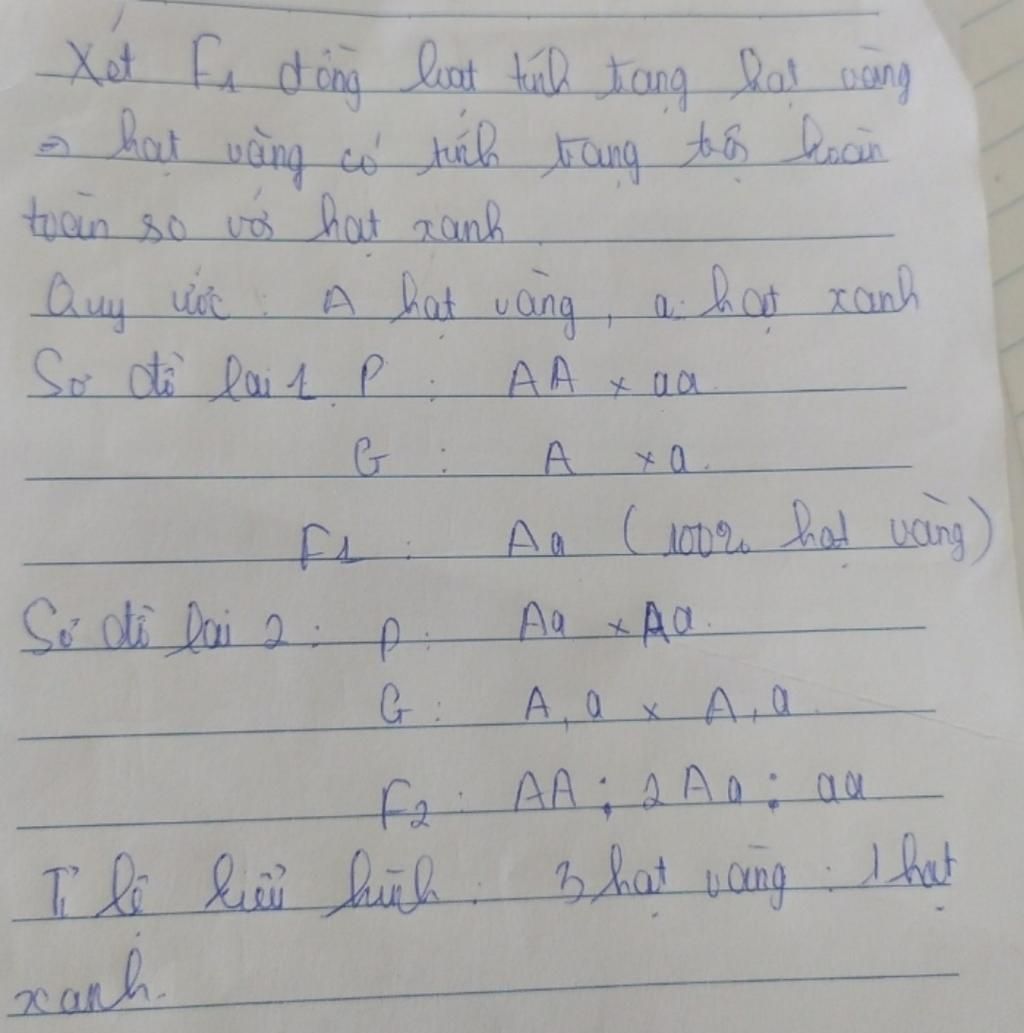 Xét F1 đồng loạt tính trạng hạt vàng
=> hạt vàng có tính trạng trội hoàn
toàn so với hạt xanh
Quy ước: A hạt vàng, a: hạt xanh
Sơ đồ lai 1. P: AA x aa
G: A x a.
F1: Aa (100% hạt vàng)
Sơ đồ lai 2: P: Aa x Aa.
G: A, a x A, a
F2: AA : 2Aa : aa
Tỉ lệ kiểu hình: 3 hạt vàng : 1 hạt
xanh.